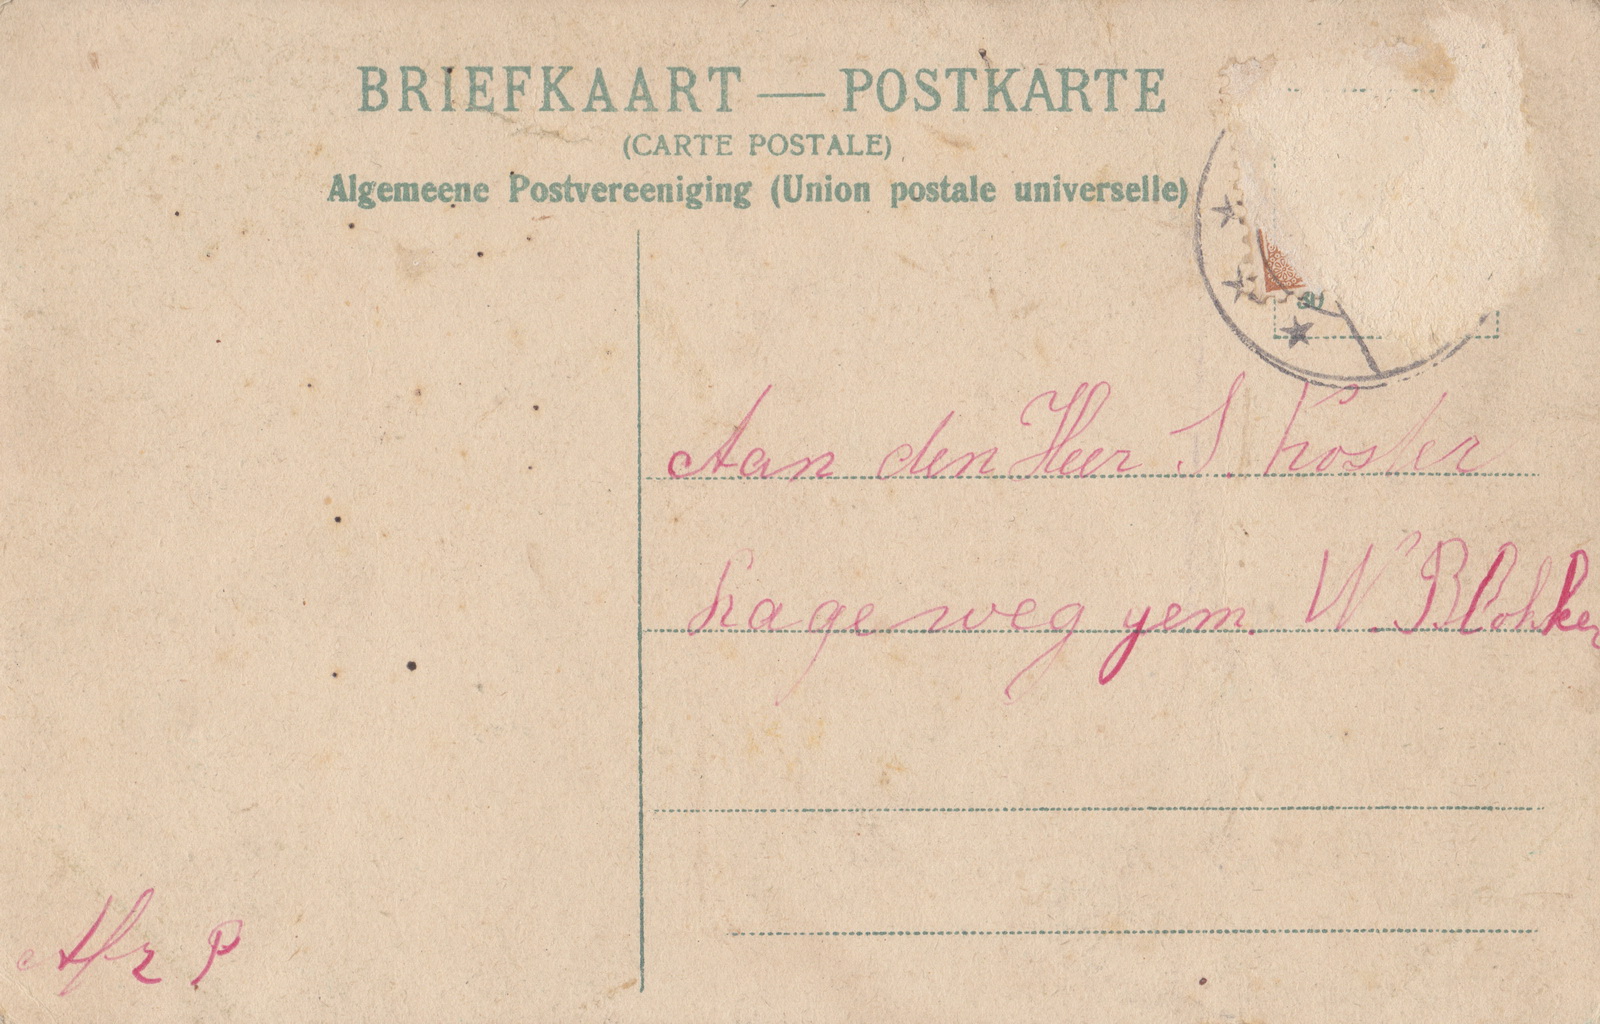 BRIEFKAART — POSTKARTE
(CARTE POSTALE)
Algemeene Postvereeniging (Union postale universelle)
Aan den Heer S. Koster
hageweg gem. W. Blokker
Afz P